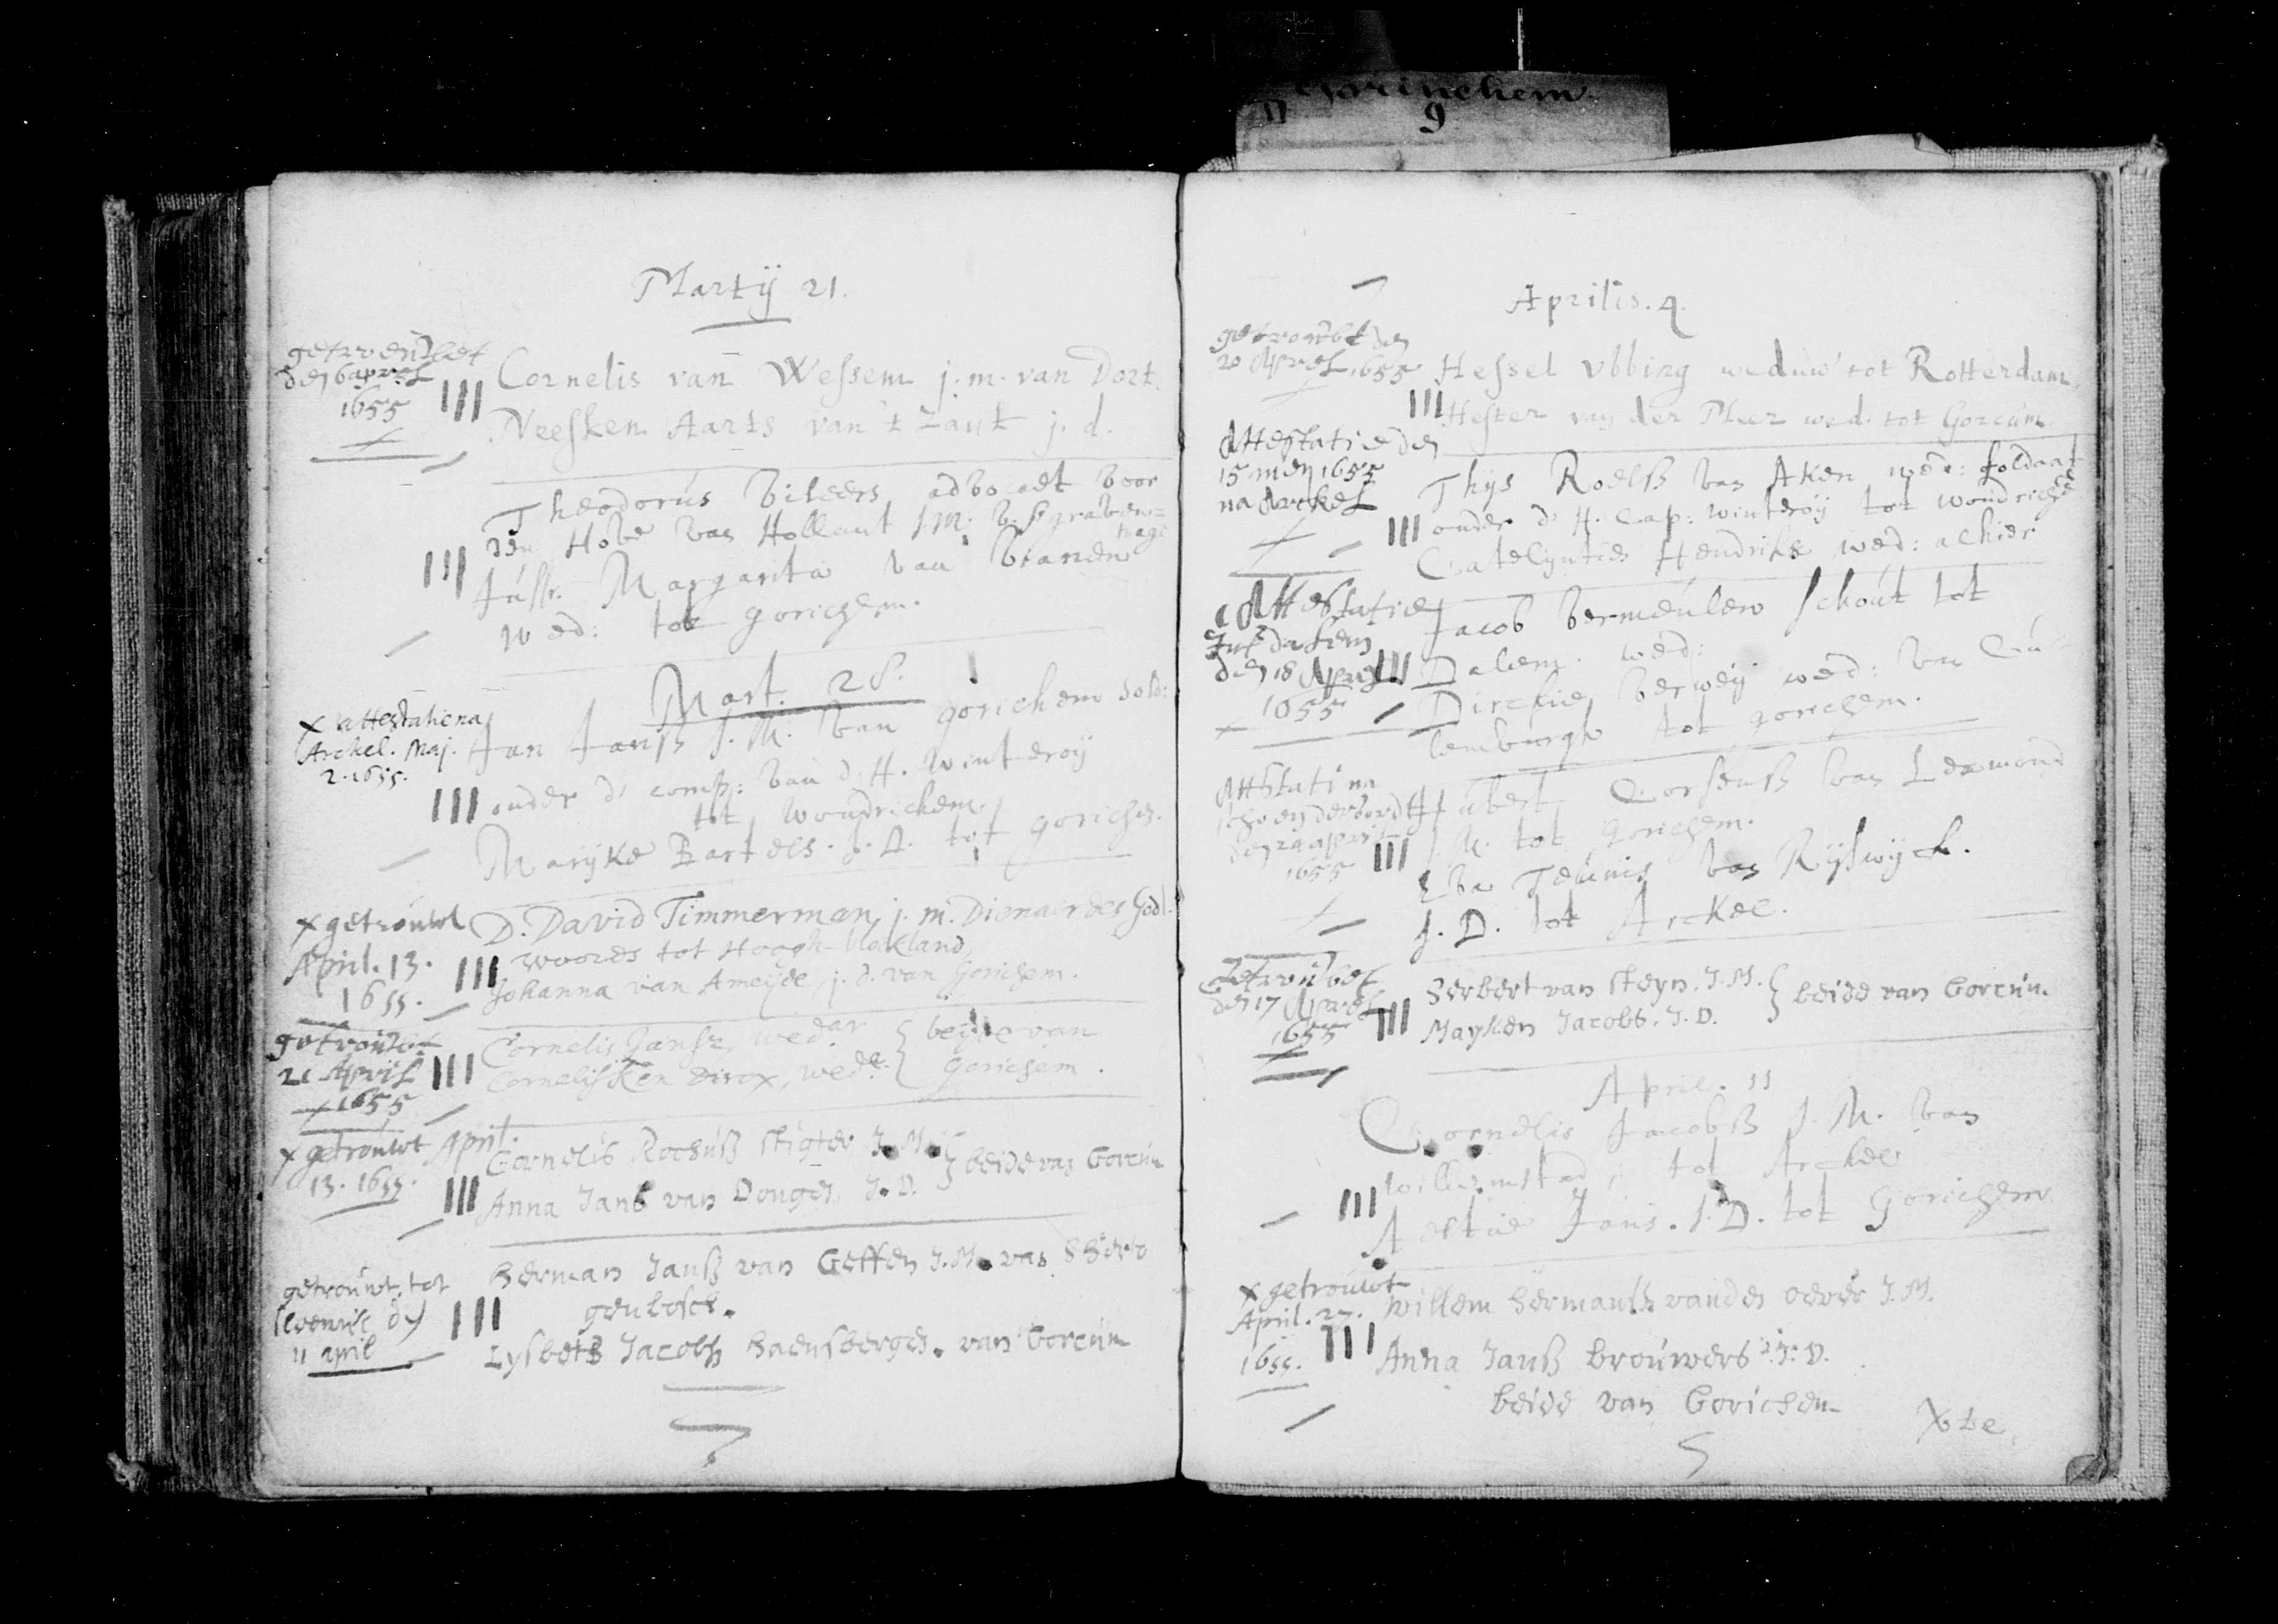 Gorinchem
9
Martij 21.
getrouwt
den 6 aprel
1655
III
Cornelis van Wessem j.m. van Dort.
Neesken Aarts van't Zant j. d.
III
Theodorus Vileers advocaet voor
den Hove van Hollant J.M. v. sgraven=
hage
Juffr. Margarita van Vianen
wed: tot gorichem.
Mart. 28.
x attestatie na
Arckel. Maj.
2. 1655.
III
Jan Janss J. M. van gorichem sold:
onder d' comp: van d. H. Winteroy
tot woudrichem
Marijke Bartels. J. D. tot gorichem.
x getrouwt
April. 13.
1655.
III
D. David Timmerman, j. m. Dienaer des Godl.
woords tot Hoogh-blokland,
Johanna van Ameijde, j. d. van Gorichem.
getrouwt
21 April
1655
III
Cornelis Jansz, wedar } beijde van
Cornelisken Dirox, wede. } Gorichem.
x getrouwt April.
13. 1655.
III
Cornelis Rochuss stigter J. M. } beide van Gorcum
Anna Jans van Dongen J. D.
getrouwt tot
den
11 april
III
Herman Janss van Geffen J. M. van sHerto
genbosch.
Lysbeth Jacobss Haensbergen. van Gorcum
Aprilis. 4.
getrouwt den
20 Aprel 1655
III
Hessel Ubbing weduw' tot Rotterdam.
Hester van der Meer wed. tot Gorcum.
Attestatie den
15 mey 1655
na Arckel
III
Thys Roelss van Aken wed: soldaat
onder d' H. Cap: winteroy tot woudriche
Catelyntie Hendriks wed: alhier
Attestatie
Dalem
den 18 Aprel
1655
III
Jacob Vermeulen schout tot
Dalem. wed:
Dirckie Verweij wed: van Cu-
lemburgh tot gorichem.
Attestati na
den 24 april
1655
III
Hubert Corsenss van Leermond
J. M. tot gorichem.
Eva Teunis van Rijswijck.
J. D. tot Arckel.
getrouwt
den 17 Aprel
1655
III
Herbert van Steyn. J. M. } beide van Gorcum.
Mayken Jacobs. J. D.
April. 11
III
Cornelis Jacobss J. M. van
Willemstad, tot Arckel
Aeltie Jans. J. D. tot Gorichem
x getrouwt
April. 27.
1655.
III
Willem Hermanss vanden oever J. M.
Anna Janss Brouwers J. D.
beide van Gorichem